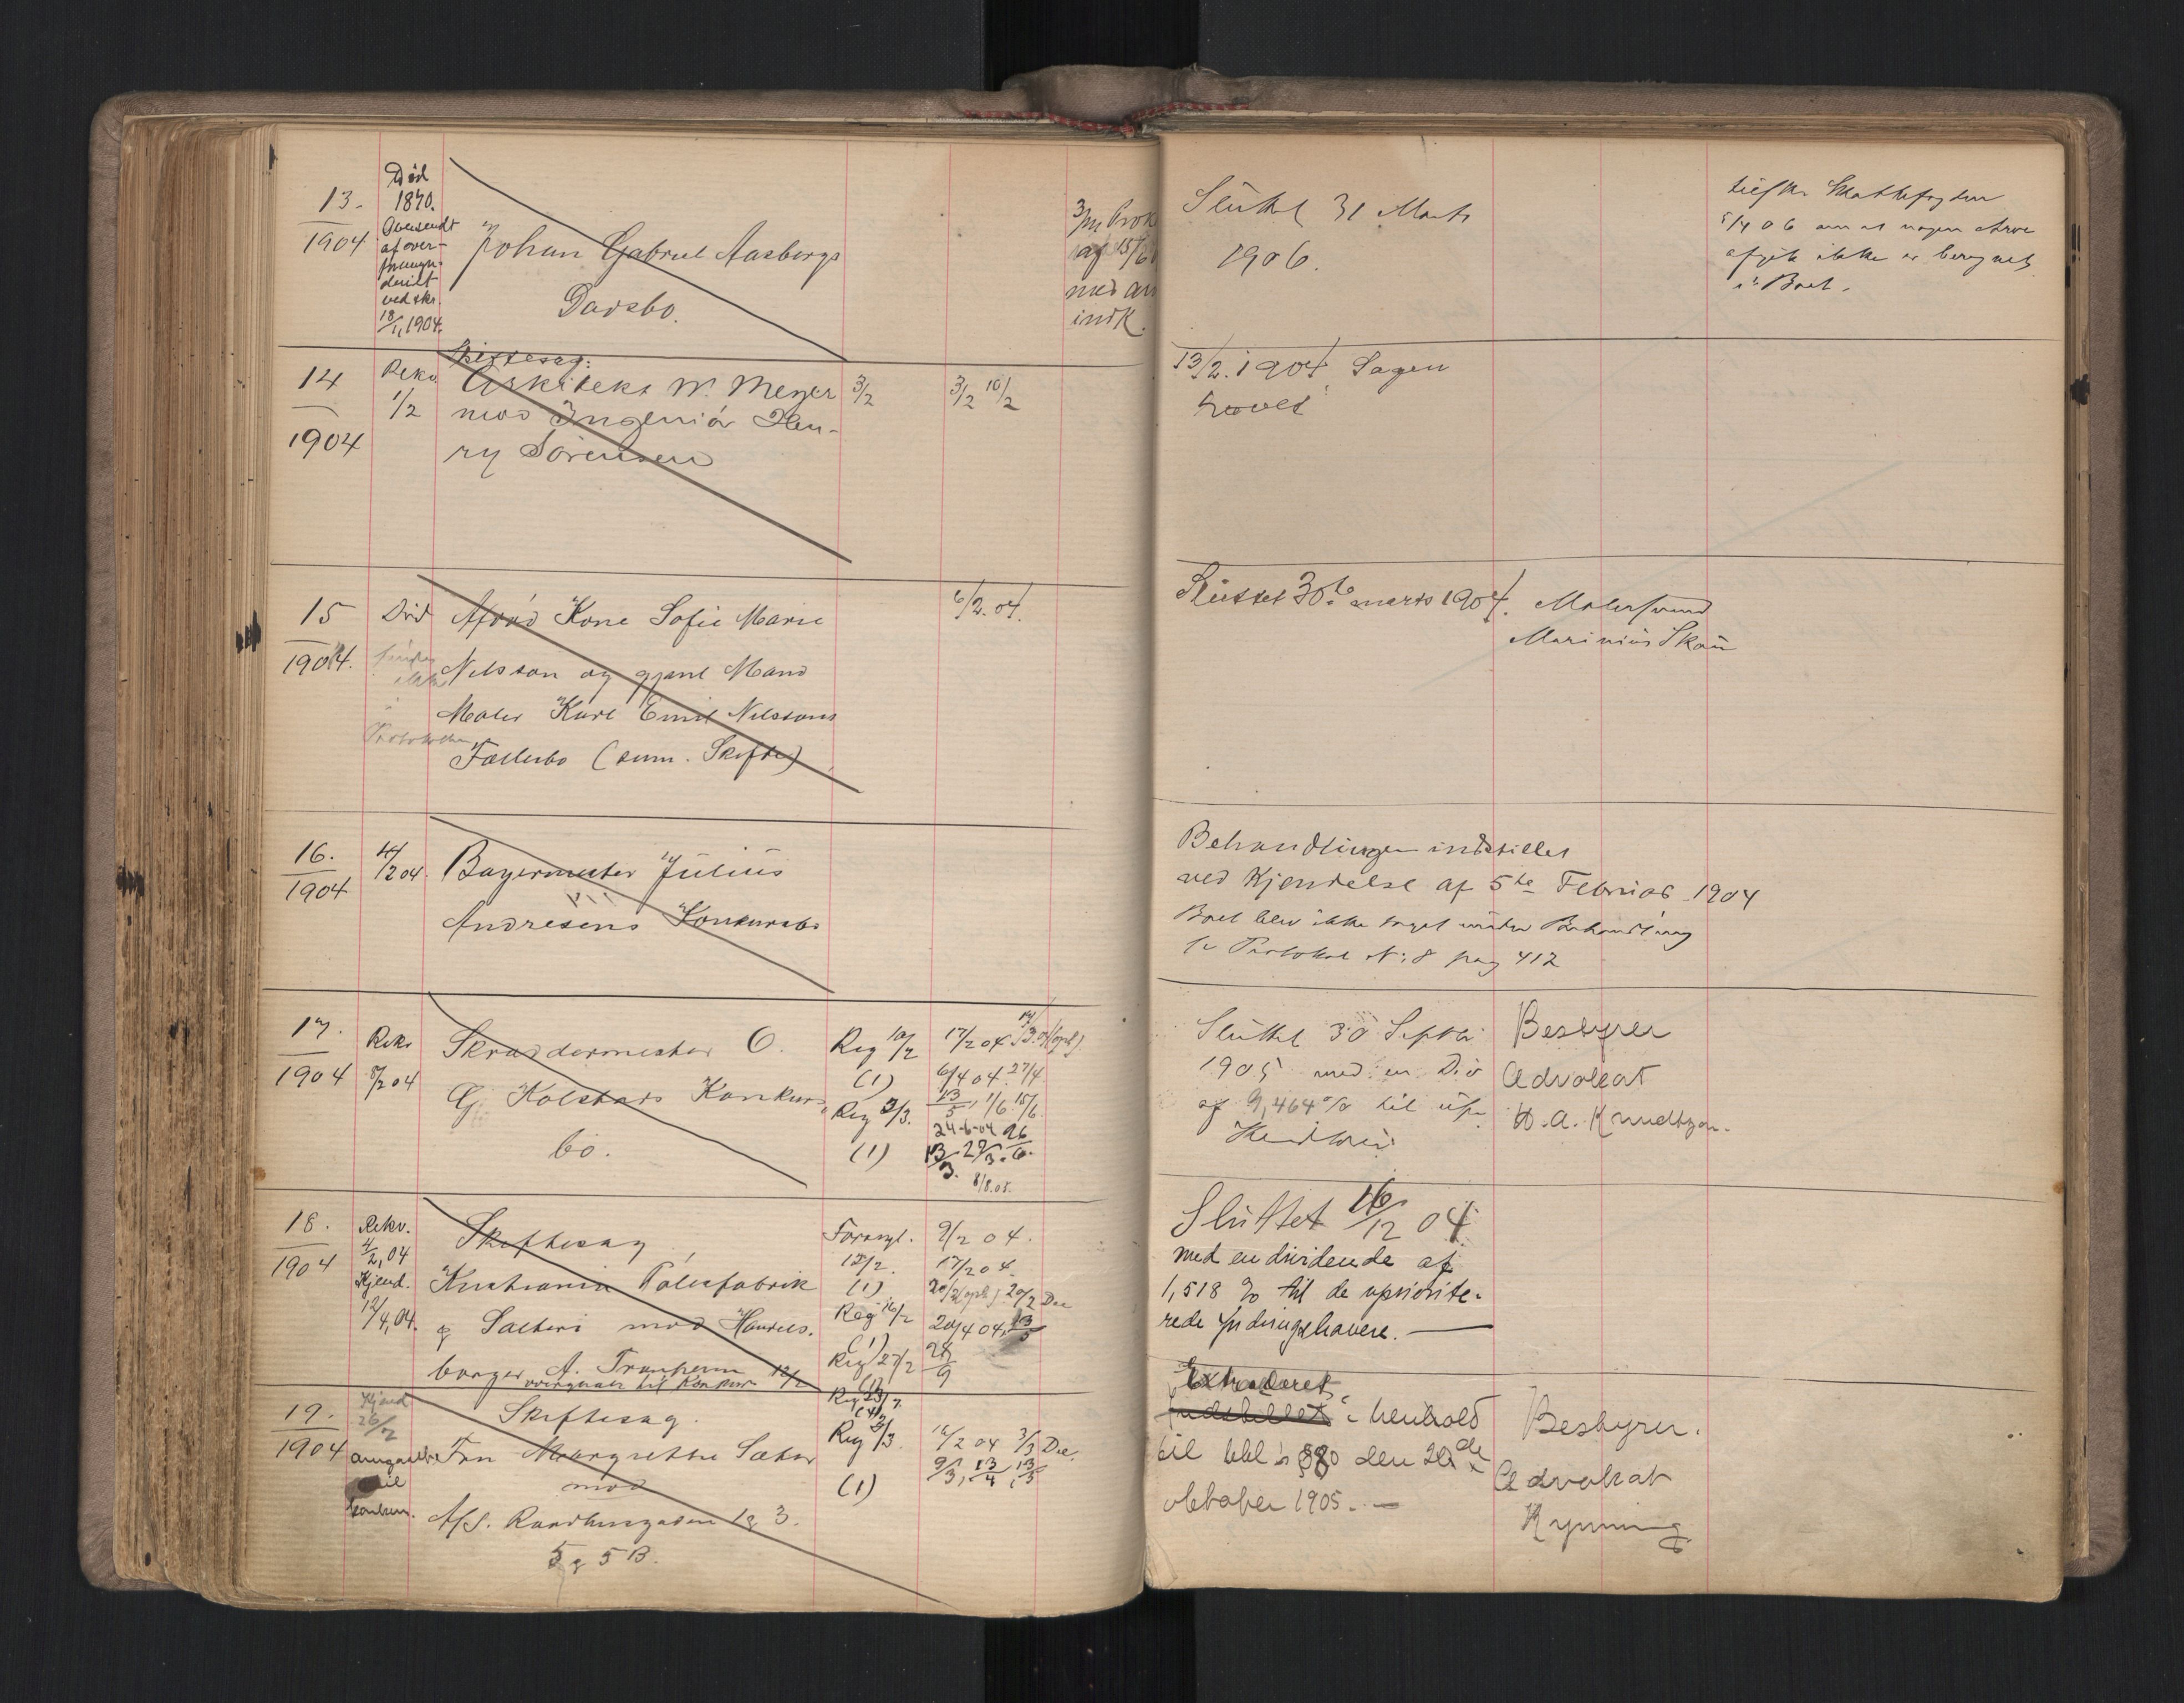 13.
1904
Død
1870.
Oversendt
af over-
formyn-
deriet
ved skr.
18/1, 1904.
Johan Gabriel Aasbergs
Dødsbo.
af 15/6
med an
indk.
Sluttet 31 Marts
1906.
5/4 06 om at nogen Arve
afgift ikke er beregnet
i Boet.
14
1904
Rekv.
1/2
Skiftesag:
Arkitekt W. Meyer
mod Ingeniør Hen-
ry Sørensen
3/2
3/2 10/2
13/2. 1904. Sagen
hævet
15
1904.
Død
findes
ikke
i
Protokollen
Afdød Kone Sofie Marie
Nilsson og gjenl Mand
Maler Karl Emil Nilssons
Fællesbo (sum. Skifte)
6/2. 04.
Sluttet 30te marts 1904.
Malersvend
Marinius Skau
16.
1904
4/2 04.
Bagermester Julius
Andresens Konkursbo
Behandlingen indstillet
ved Kjendelse af 5te Februar 1904
Boet blev ikke taget under Behandling
se Protokol No 8 pag 412
17.
1904
Rekv
8/2 04
Skræddermester O.
G. Kolstads Konkurs
bo.
Reg 10/2
(1)
Reg 3/3.
(1)
17/2 04
6/4 04. 27/4
13/5, 1/6. 15/6.
24-6-04
8/8.05.
Sluttet 30 Septbr
1905 med en Div
af 9,464% til upr.
Kreditorer
Bestyrer
Advokat
H. A. Knudtzon.
18.
1904
Rekv.
4/2, 04
Kjend.
12/4, 04.
Skiftesag,
Kristiania Pølsefabrik
& Salteri mod Handels-
borger A. Tronhjem
overgaaet til Konkurs 12/2
Foreg.
12/2.
(1)
Reg 16/2
(1)
Reg 27/2
(1)
9/2 04.
17/2 04.
20/4 04,
28/9
Sluttet 16/12 04
med en dividende af
1,518 % til de uprioite-
rede fordringshavere.
19.
1904
Kjend
26/2
overgaaet
til
konkurs.
Skiftesag.
Fru Margrethe Sæter
mod
A/S. Rundkingaden 1 & 3.
5 & 5 B.
Reg 3/3.
(1)
16/2 04 3/3 Dec.
9/3, 13/4, 13/5
Extraderet
indstillet i henhold
til kkl's § 80 den 20de
oktober 1905.
Bestyrer.
Advokat
Rynning